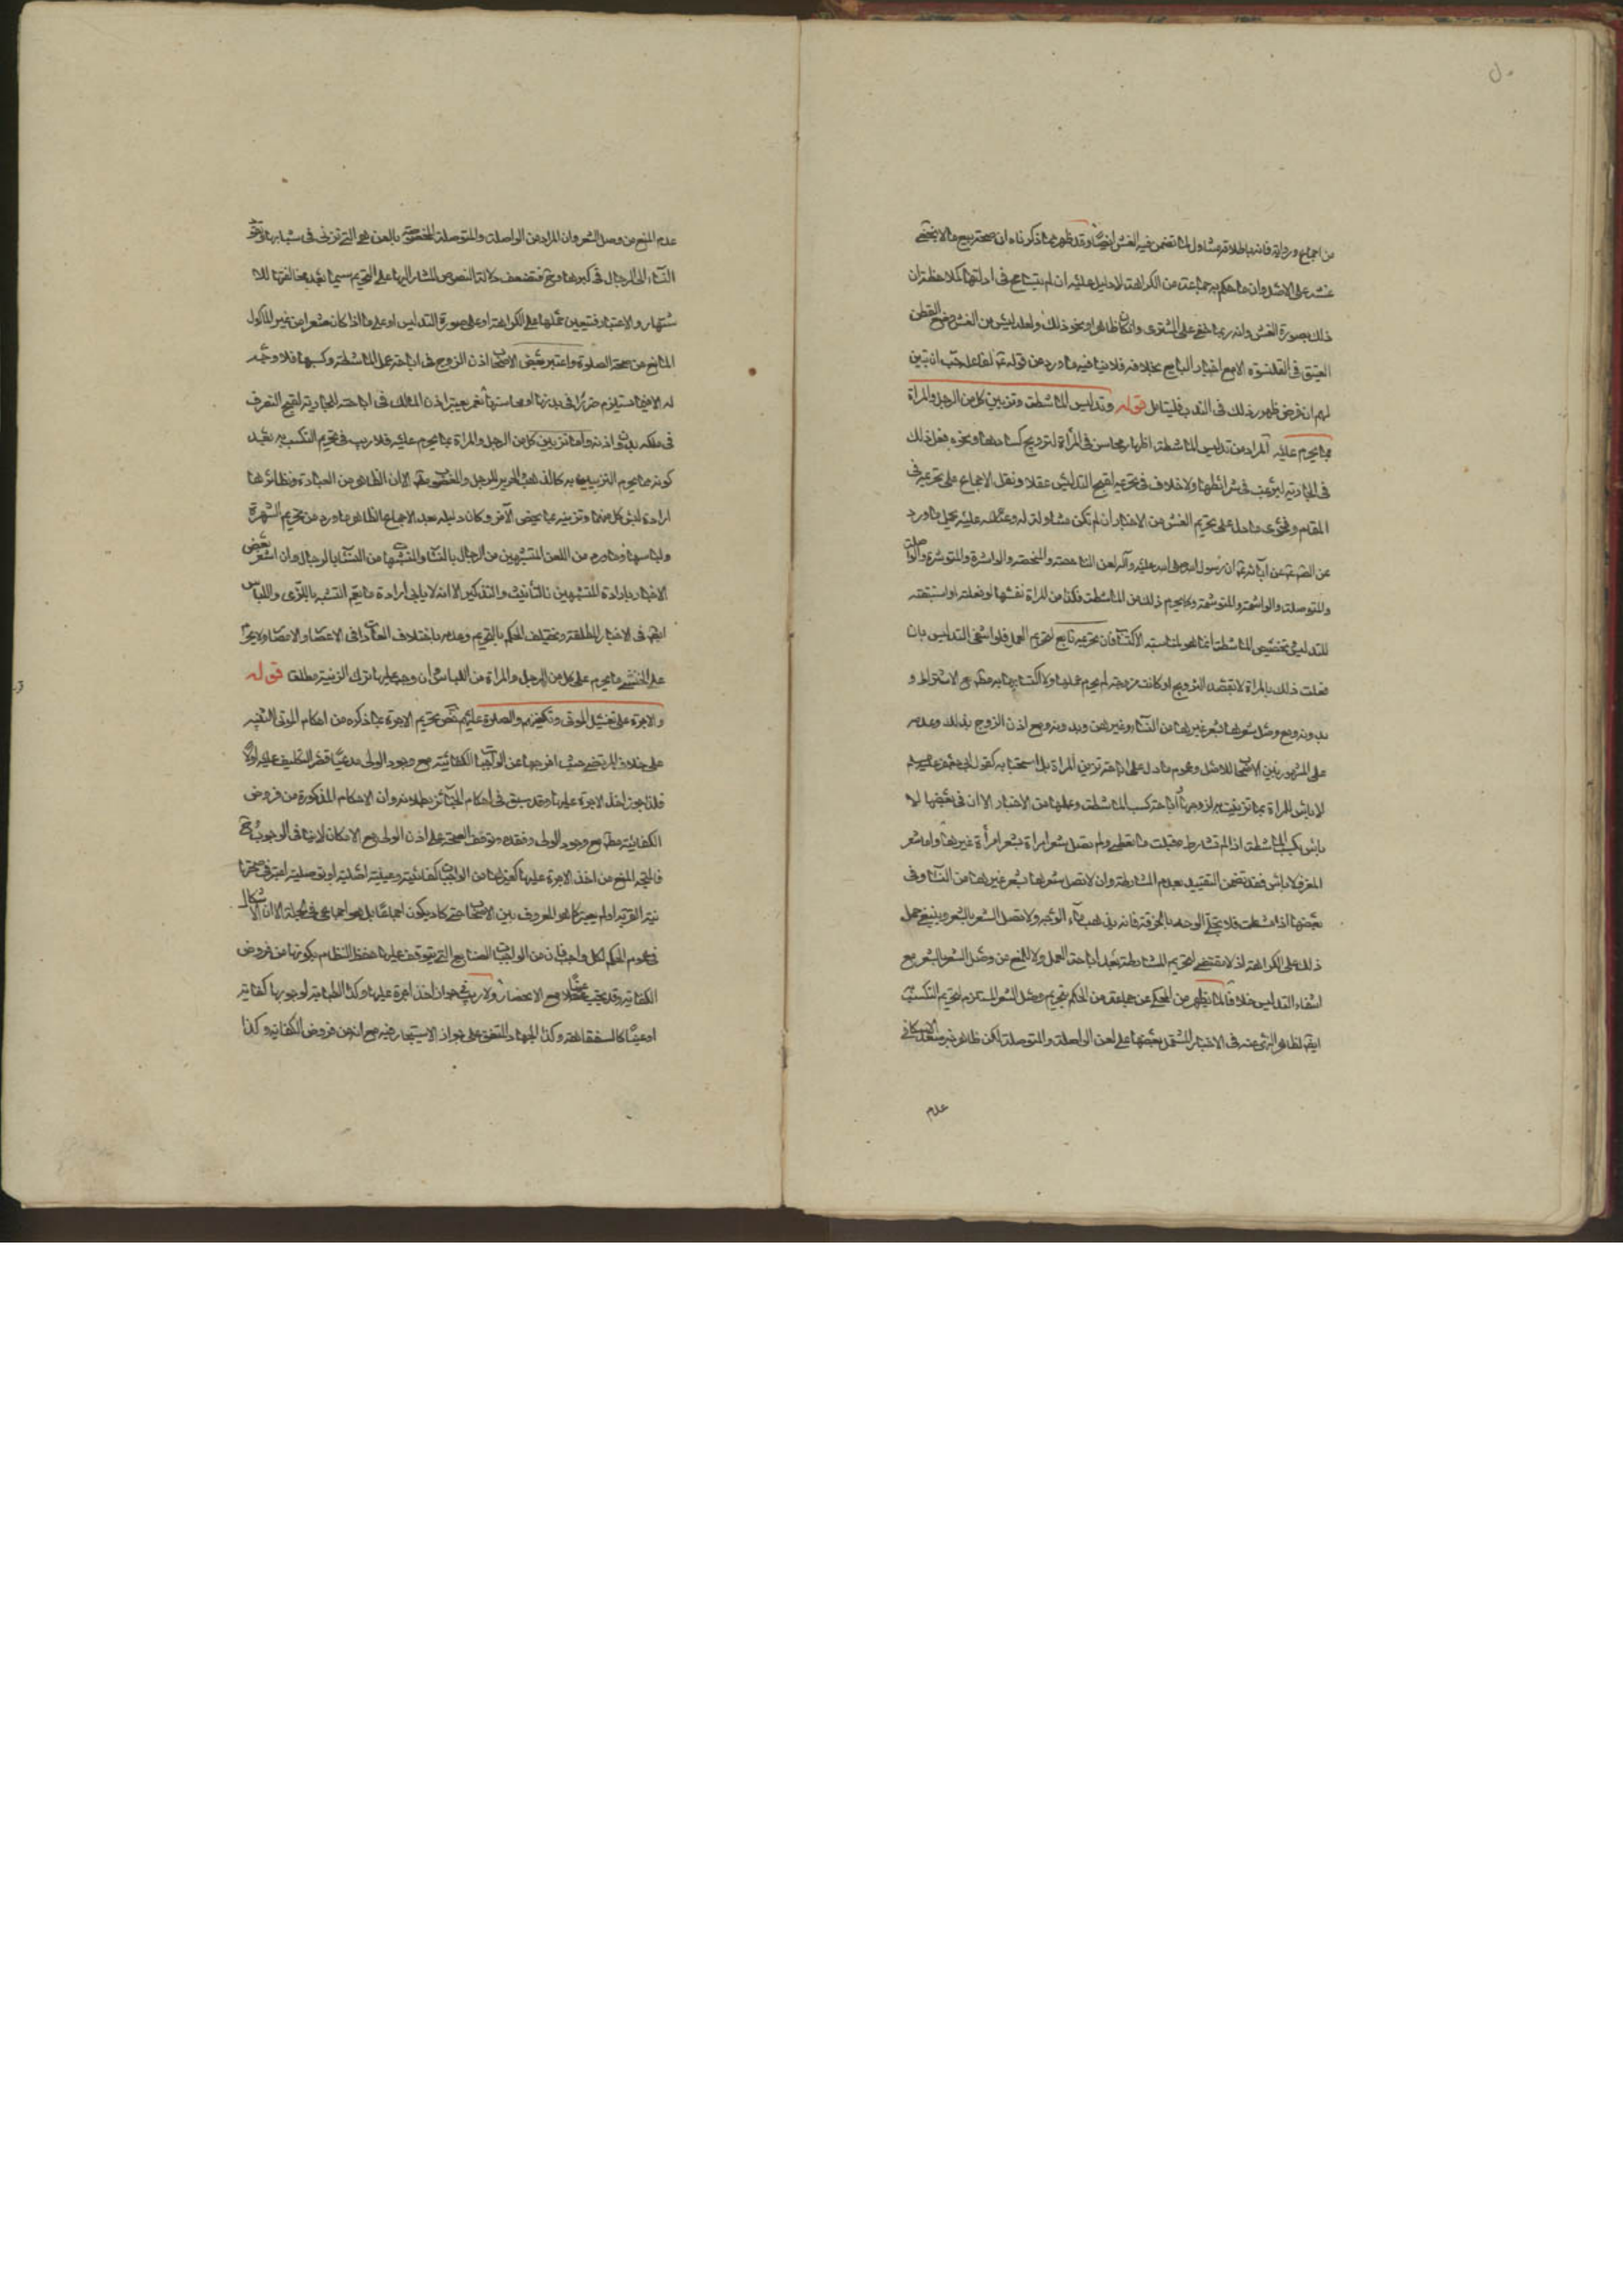 من اجماع ورواية فانه باطلاقه متناول لما تضمن فيه الغش ايضا وقد ظهر مما ذكرناه ان صحة بيع ما لا يخفى
غشه على الاشبه وان ما حكم به جماعة من الكراهة لا دليل عليه ان لم يتسامح في ادلتها كملاحظة ان
ذلك بصورة الغش وانه ربما خفي على المشترى وان كان ظاهرا ونحو ذلك ولعله ليس من الغش وضع القطن
العتيق في القلنسوة الا مع اخبار البايع بخلافه فلا ينافيه ما ورد من قوله احب ان تبين
لهم ان فرض ظهور ذلك في الندب فليتامل قوله وتدليس الماشطة وتزيين كل من الرجل والمراة
بما يحرم عليه المراد من تدليس الماشطة اظهارها محاسن في المرأة لترويج كسادها ونحوه فعل ذلك
في الجارية ليرغب في شرائها ولا خلاف في تحريمه لقبح التدليس عقلا ونقل الاجماع على تحريمه في
المقام وفحوى ما دل على تحريم الغش من الاخبار ان لم تكن متناولة له وعليه يحمل ما ورد
عن آبائه ان رسول الله صلى الله عليه وآله لعن النامصة والمنتمصة والواشرة والموتشرة والواصلة
والمتوصلة والواشمة والموتشمة وكما يحرم ذلك من الماشطة فكذا من المراة نفسها لو فعلته او استبقته
للتدليس وتخصيص الماشطة انما هو لمناسبة الاكتساب فان تحريمه تابع لتحريم العمل فلو انتفى التدليس بان
فعلت ذلك بالمراة لا بقصد التزويج او كانت مزوجة لم يحرم عملها ولا اكتسابها به مع الاشتراط و
بدونه ومع وصل شعرها بشعر غيرها من النساء وغيرهن وبدونه ومع اذن الزوج بذلك وعدمه
على المشهور بين الاصحاب للاصل وعموم ما دل على اباحة تزيين المراة بل استحبابه كقول ابي جعفر
لا باس للمراة بما تزينت به لزوجها اباحة كسب الماشطة وعملها من الاخبار الا ان في بعضها لا
باس بكسب الماشطة اذا لم تشارط وقبلت ما تعطى ولم تصل شعر امراة بشعر امرأة غيرها واما شعر
المعز فلا باس فقد تضمن التقييد بعدم المشارطة وان لا تصل شعرها بشعر غيرها من النساء وفي
بعضها اذا مشطت فلا تجلي الوجه بالخرقة فانه يذهب بماء الوجه ولا تصل الشعر بالشعر وينبغي حمل
ذلك على الكراهة اذ لا مقتضى لتحريم المشارطة بعد اباحة العمل ولا للمنع من وصل الشعر بالشعر مع
انتفاء التدليس خلافا لما يظهر من المحكي عن جماعة من الحكم بتحريم وصل الشعر المستلزم لتحريم التكسب
لظاهر النهي عنه في الاخبار المشتمل بعضها على لعن الواصلة والمتوصلة لكن ظاهر خبر سعد الاسكافي
عدم
عدم المنع من وصل الشعر وان المراد من الواصلة والمتوصلة المخصوصة بالعن هي التي تزني في شبابها وتقود
النساء الى الرجال في كبرها فتضعف دلالة النصوص المشار اليها على التحريم سيما بعد مخالفتها للا
شتهار والاعتبار فتتعين حملها على الكراهة او على صورة التدليس او على ما اذا كان شعرا من غير الماكول
المانع من صحة الصلوة واعتبر بعض الاصحاب اذن الزوج في اباحة عمل الماشطة وكسبها فلا وجه
له الا فيما استلزم ضررا في بدنها او محاسنها نعم يعتبر اذن المالك في اباحته الجارية لقبح التصرف
في ملكه بدون اذنه واما تزيين كل من الرجل والمراة بما يحرم عليه فلا ريب في تحريم التكسب به بعد
كونه مما يحرم التزيين به كالذهب والحرير للرجل الا ان الظاهر من العبادة ونظائرها
ارادة لبس كل منهما وتزيينه بما يخص الآخر وكان دليله بعد الاجماع الظاهر ما ورد من تحريم الشهرة
ولباسها وما ورد من اللعن المتشبهين من الرجال بالنساء والمتشبهات من النساء بالرجال وان اشعر بعض
الاخبار بارادة المتشبهين بالتأنيث والتذكير الا انه لا يابى ارادة ما يعم التشبه بالزي واللباس
في الاخبار المطلقة ويختلف الحكم بالتحريم وعدمه باختلاف العادات في الاعصار والامصار ولا يحرم
على الخنثى ما يحرم على كل من الرجل والمراة من اللباس وان وجد عليها ترك الزينة مطلقا قوله
والاجرة على تغسيل الموتى وتكفينهم والصلوة عليهم نص بتحريم الاجرة بما ذكره من احكام الموتى التنبيه
على خلاف المرتضى حيث اخرجها عن الواجبات الكفائية مع وجود الولي مدعيا قصر التكليف عليه اولا
فلذا جوز اخذ الاجرة عليها وقد سبق في احكام الجنائز بطلانه وان الاحكام المذكورة من فروض
الكفائية مع وجود الولي وفقده وتوقف الصحة على اذن الولي مع الامكان لا ينافي الوجوب
فاتجه المنع من اخذ الاجرة عليها كغيرها من الواجبات كفائية وعينية اصلية او توصلية اعتبر في صحتها
نية القربة او لم يعتبر كما هو المعروف بين الاصحاب حتى كاد يكون اجماعا بل هو اجماعي في الجملة الا ان الاشكال
في عموم الحكم لكل واجب فان من الواجبات الصنايع التي يتوقف عليها حفظ النظام بكونها من فروض
الكفاية وقد تجب عينا مع الانحصار ولا ريب في جواز اخذ اجرة عليها وكذا الطبابة لوجوبها كفاية
او عينا كالسفقاهة وكذا الجهاد المتفق على جواز الاستيجار فيه مع انه من فروض الكفاية وكذا